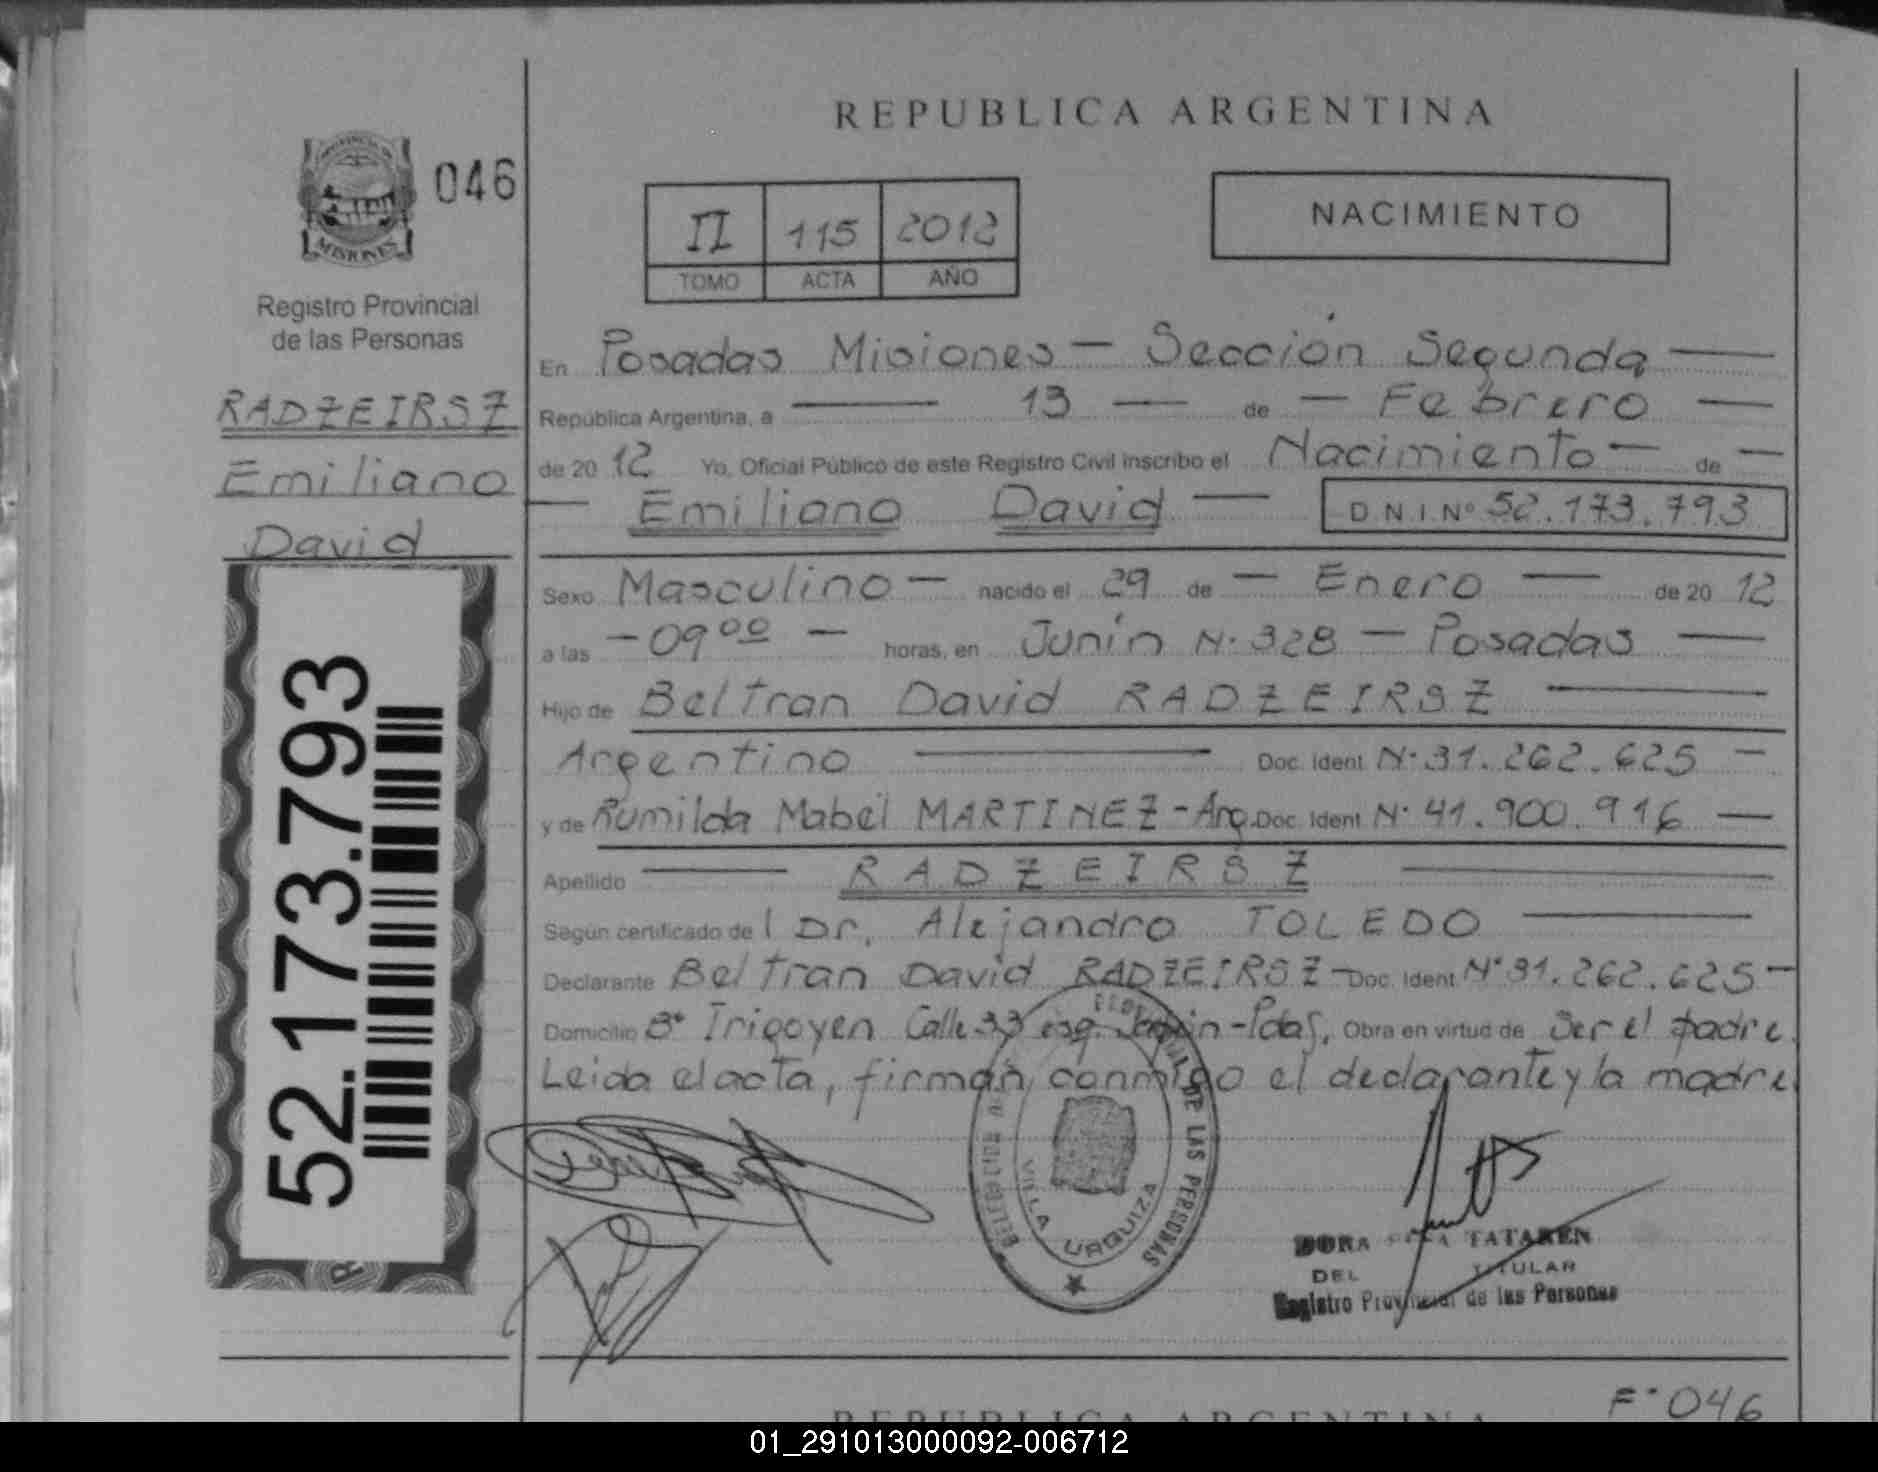 REPUBLICA ARGENTINA
PROVINCIA DE
MISIONES
046
Registro Provincial
de las Personas
RADZEIRSZ
Emiliano
David
52.173.793
II 115 2012
TOMO ACTA AÑO
NACIMIENTO
En Posadas Misiones — Sección Segunda —
República Argentina, a — 13 — de — Febrero —
de 20 12 Yo, Oficial Público de este Registro Civil inscribo el Nacimiento — de —
— Emiliano David — D.N.I. Nº 52.173.793
Sexo Masculino — nacido el 29 de — Enero — de 20 12
a las — 09 00 — horas, en Junín N· 328 — Posadas —
Hijo de Beltran David RADZEIRSZ —
Argentino — Doc. Ident. N· 31.262.625 —
y de Rumilda Mabel MARTINEZ - Arg. Doc. Ident. N· 41.900.916 —
Apellido — RADZEIRSZ —
Según certificado de l Dr. Alejandro TOLEDO —
Declarante Beltran David RADZEIRSZ — Doc. Ident. N° 31.262.625 —
Domicilio B° Irigoyen Calle 33 esq. -Pdas, Obra en virtud de Ser el padre.
Leida el acta, firman conmigo el declarante y la madre.
DE LAS PERSONAS
VILLA URQUIZA
DORA TATAREN
DEL TITULAR
Registro Provincial de las Personas
F° 046
REPUBLICA ARGENTINA
01_291013000092-006712